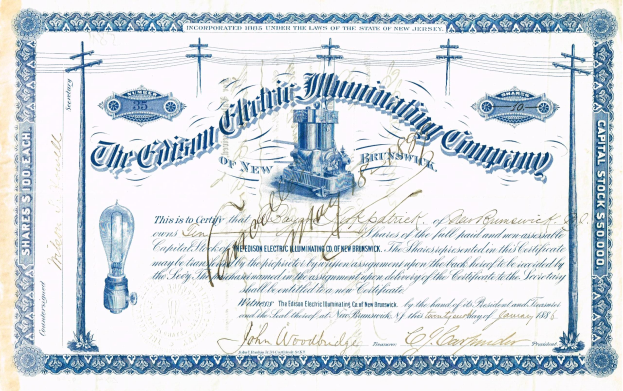 INCORPORATED 1885 UNDER THE LAWS OF THE STATE OF NEW JERSEY.
NUMBER
35
SHARES
10
The Edison Electric Illuminating Company
OF NEW BRUNSWICK.
SHARES $100 EACH.
CAPITAL STOCK $50,000.
Countersigned
Secretary
This is to Certify that Kirkpatrick of New Brunswick N.J.
owns Ten Shares of the full paid and non-assessable
Capital Stock of THE EDISON ELECTRIC ILLUMINATING CO. OF NEW BRUNSWICK. The Shares represented in this Certificate
may be transferred by the proprietor having an assignment upon the back hereof to be recorded by
the Secy. named in the assignment upon delivery of the Certificate to the Secretary
shall be entitled to a new Certificate.
Witness The Edison Electric Illuminating Co. of New Brunswick. by the hand of its President and Treasurer
and the Seal thereof at New Brunswick, N.J. this day of January 1886
Cancelled May 18 1897
John Woodbridge Treasurer C.J. Carpender President